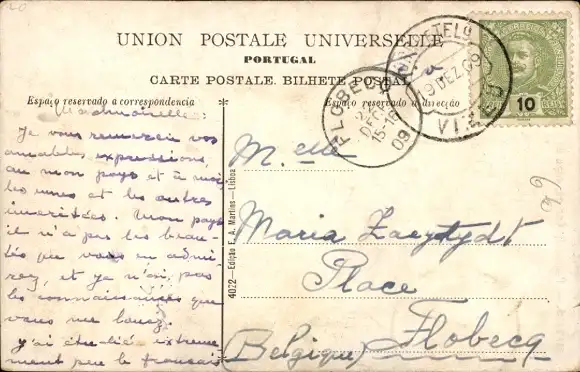 UNION POSTALE UNIVERSELLE
PORTUGAL
CARTE POSTALE. BILHETE POSTAL
Espaço reservado a correspondencia
Espaço reservado a direcção
Mademoiselle:
Je vous remercie vos
amables expressions,
au mon pays et à moi,
les unes et les autres
imeritées. Mon pays
il n'a pas les beau-
tés que vous en admi-
rez, et je n'ai pas
les connaissances que
vous me louez.
J'ai étudié extreme
ment peu le français
4022 — Edição F. A. Martins — Lisboa
M.elle
Maria
Place
Flobecq
(Belgique)
FLOBECQ
22
DEC
15-16
09
19 DEZ 09
10